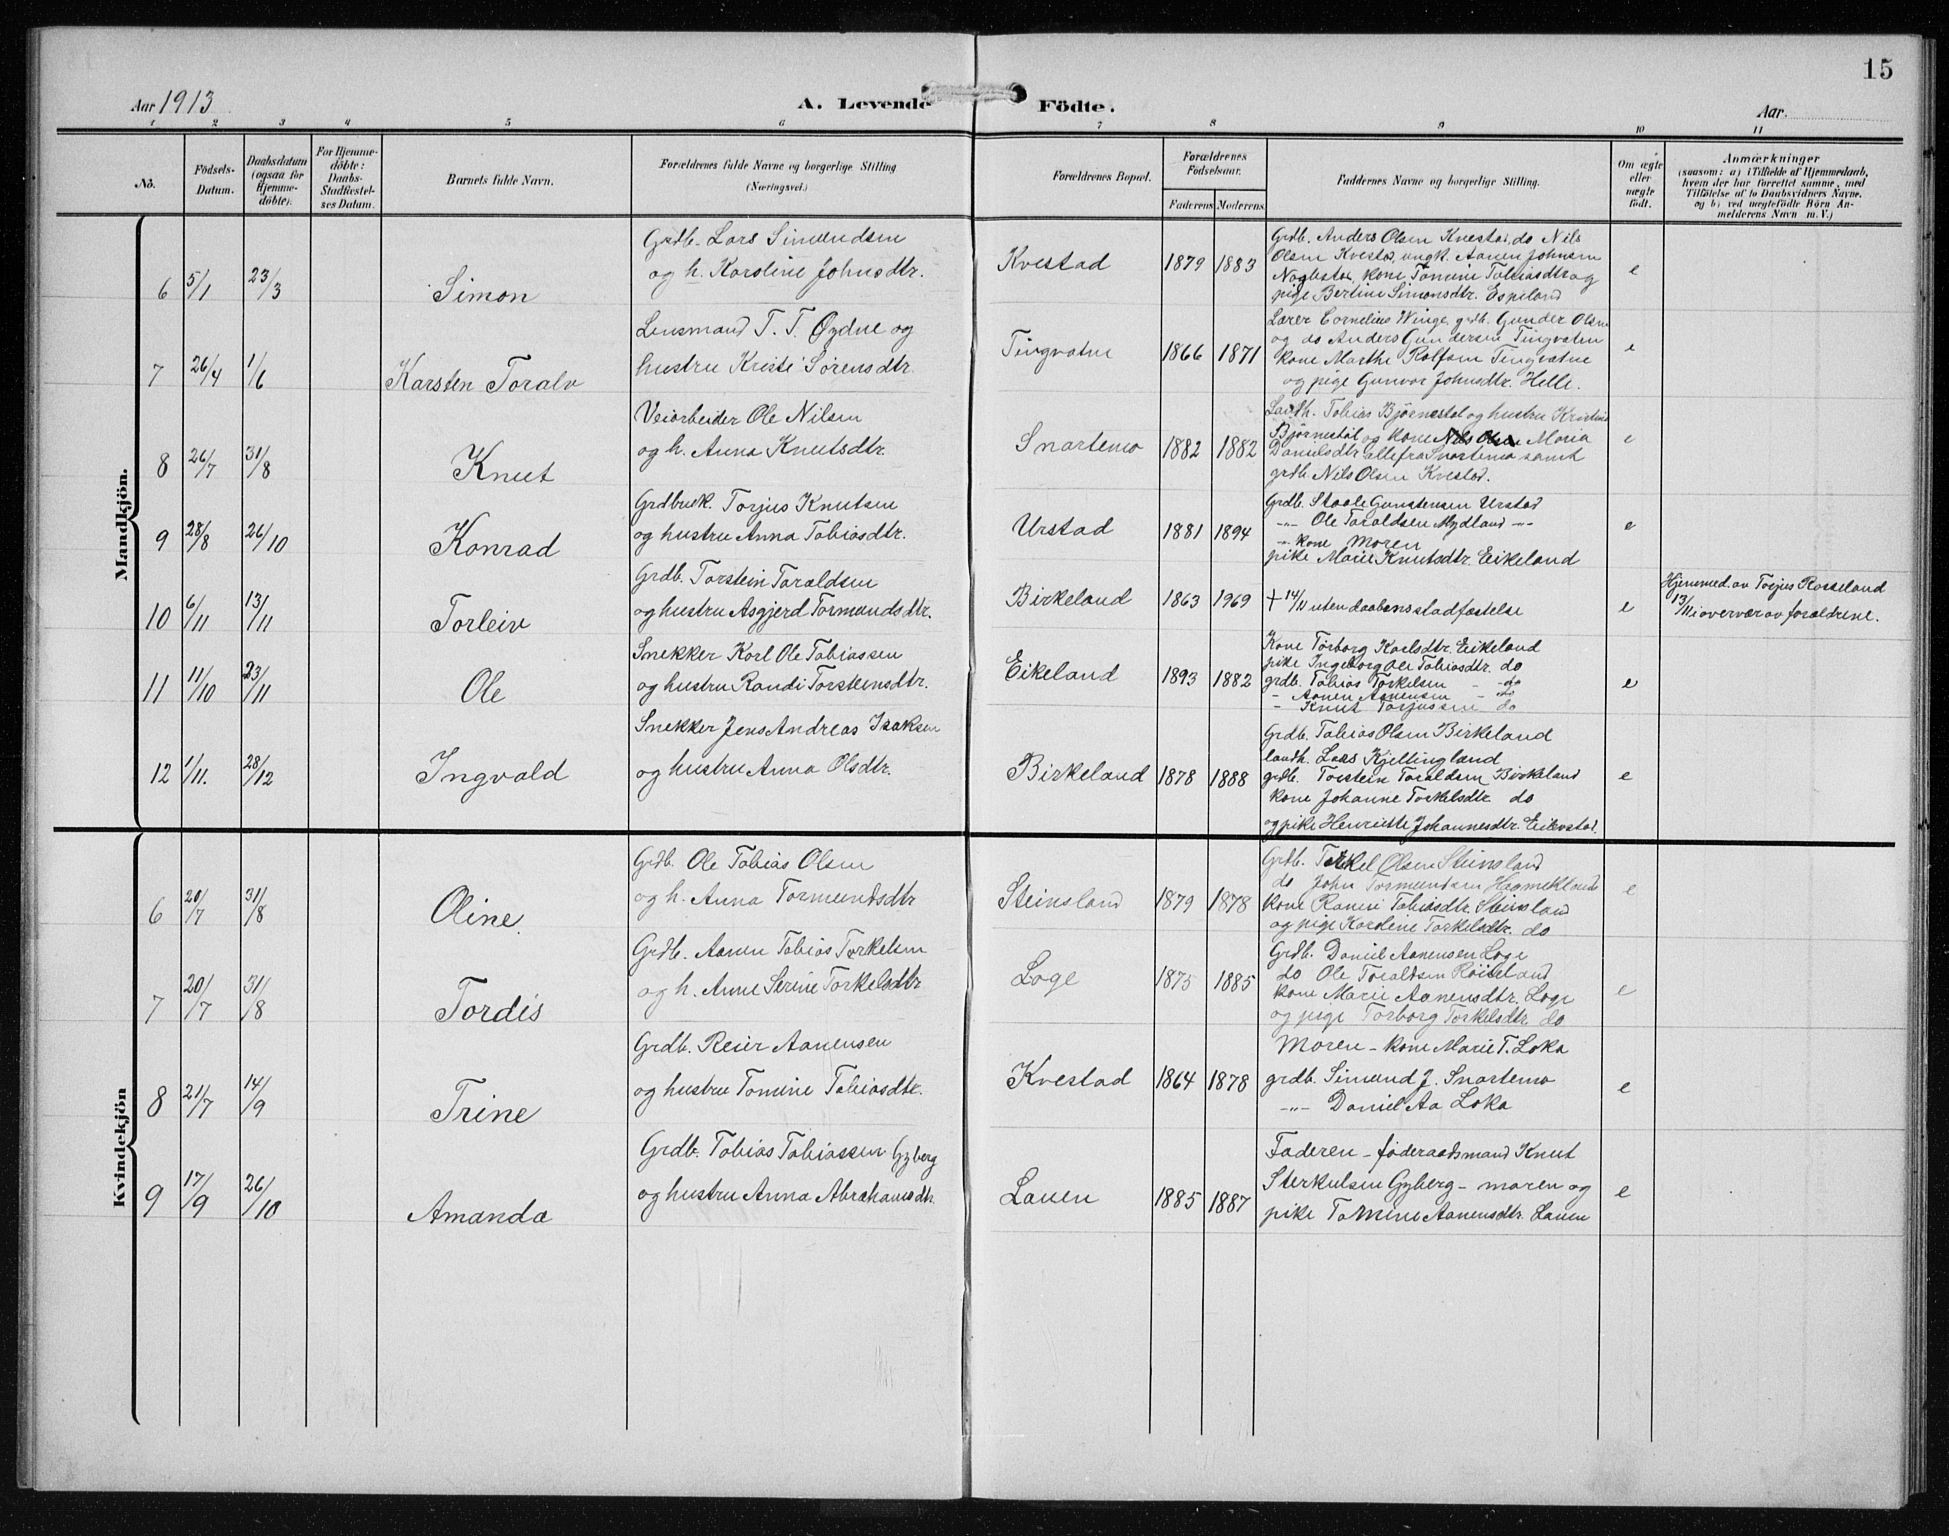 15
Aar 1913
A. Levende Födte.
Aar
1 2 3 4 5 6 7 8 9 10 11
No.
Födsels-
Datum.
Daabsdatum
(ogsaa for
Hjemme-
döbte).
For Hjemme-
döbte:
Daabs-
Stadfæstel-
ses Datum.
Barnets fulde Navn.
Forældrenes fulde Navne og borgerlige Stilling
(Næringsvei.)
Forældrenes Bopæl.
Forældrenes
Födselsaar.
Faderens Moderens
Faddernes Navne og borgerlige Stilling.
Om ægte
eller
uægte
födt.
Anmærkninger
(saasom: a) i Tilfælde af Hjemmedaab,
hvem der har forrettet samme, med
Tilföielse af to Daabsvidners Navne,
og b) ved uægtefödte Börn An-
melderens Navn m. V.)
Mandkjön.
6 5/1 23/3 Simon
Grdb. Lars Simundsen
og h. Karoline Johnsdtr.
Kvestad 1879 1883
Grdb. Anders Olsen Kvestad, do Nils
Olsen Kvestad, ungk. Aanen Johnsen
kone Tomine Tobiasdtr og
pige Bertine Simonsdtr. Espeland
e
7 26/4 1/6 Karsten Toralv
Lensmand T. T. Øydne og
hustru Kristi Sørensdtr.
Tingvatne 1866 1871
Lærer Cornelius Winge, grdb. Gunder Olsen
og do Anders Gundersen Tingvatne
kone Marthe Rolfsen Tingvatne
og pige Gunvor Johnsdtr. Helle.
e
8 26/7 31/8 Knut
Veiarbeider Ole Nilsen
og h. Anna Knutsdtr.
Snartemo 1882 1882
Tobias Bjørnestøl og hustru Kristine
Bjørnestøl og kone Nils Olsen Maria
Danielsdtr. alle fra Snartemo samt
grdb Nils Olsen Kvestad.
e
9 28/8 26/10 Konrad
Grdbruk. Torjus Knutsen
og hustru Anna Tobiasdtr.
Urstad 1881 1894
Grdb. Staale Gunstensen Urstad
-"- Ole Toraldsen Mydland -"-
-"- kone Moren
pike Marie Knutsdtr. Eikeland
e
10 6/11 13/11 Torleiv
Grdb. Torstein Toraldsen
og hustru Asgjerd Tormundsdtr.
Birkeland 1863 1969
+ 14/11 uten daabens stadfæstelse
e
Hjemmed. av Torjus Rosseland
13/11 i overvær av forældrene.
11 11/10 23/11 Ole
Snekker Karl Ole Tobiassen
og hustru Randi Torsteinsdtr.
Eikeland 1893 1882
Kone Torborg Karlsdtr. Eikeland
pike Ingeborg Ole Tobiasdtr. do
grdb. Tobias Torkelsen - do
- Aanen Aanensen - do
- Knut Torjussen do
e
12 1/11. 28/12 Ingvald
Snekker Jens Andreas Isaksen
og hustru Anna Olsdtr.
Birkeland 1878 1888
Grdb. Tobias Olsen Birkeland
landh. Lars Kjellingland
grdb. Torstein Toraldsen Birkeland
kone Johanne Torkelsdtr. do
og pike Henriette Johannesdtr. Eilevstad.
e
Kvindekjön
6 20/7 31/8 Oline.
Grdb. Ole Tobias Olsen
og h. Anna Tormundsdtr
Steinsland 1879 1878
Grdb. Torkel Olsen Steinsland
do John Tormundsen
kone Ranni Tobiasdtr. Steinsland
og pige Karoline Torkelsdtr. do
e
7 20/7 31/8 Tordis
Grdb. Aanen Tobias Torkelsen
og h. Anne Serine Torkelsdtr
Loge 1875 1885
Grdb. Daniel Aanensen Loge
do Ole Toraldsen Röiseland
kone Marie Aanensdtr. Loge
og pige Torborg Torkelsdtr. do
e
8 21/7 14/9 Trine
Grdb. Reier Aanensen
og hustru Tomine Tobiasdtr.
Kvestad 1864 1878
Moren - kone Marie T. Loka
grdb. Simund J. Snartemo
-"- Daniel Aa Loka
e
9 17/9 26/10 Amanda
Grdb. Tobias Tobiassen Gyberg
og hustru Anna Abrahamsdtr.
Lauen 1885 1887
Faderen - føderaadsmand Knut
Sterkulsen Gyberg - moren og
pike Tomine Aanensdtr. Lauen
e